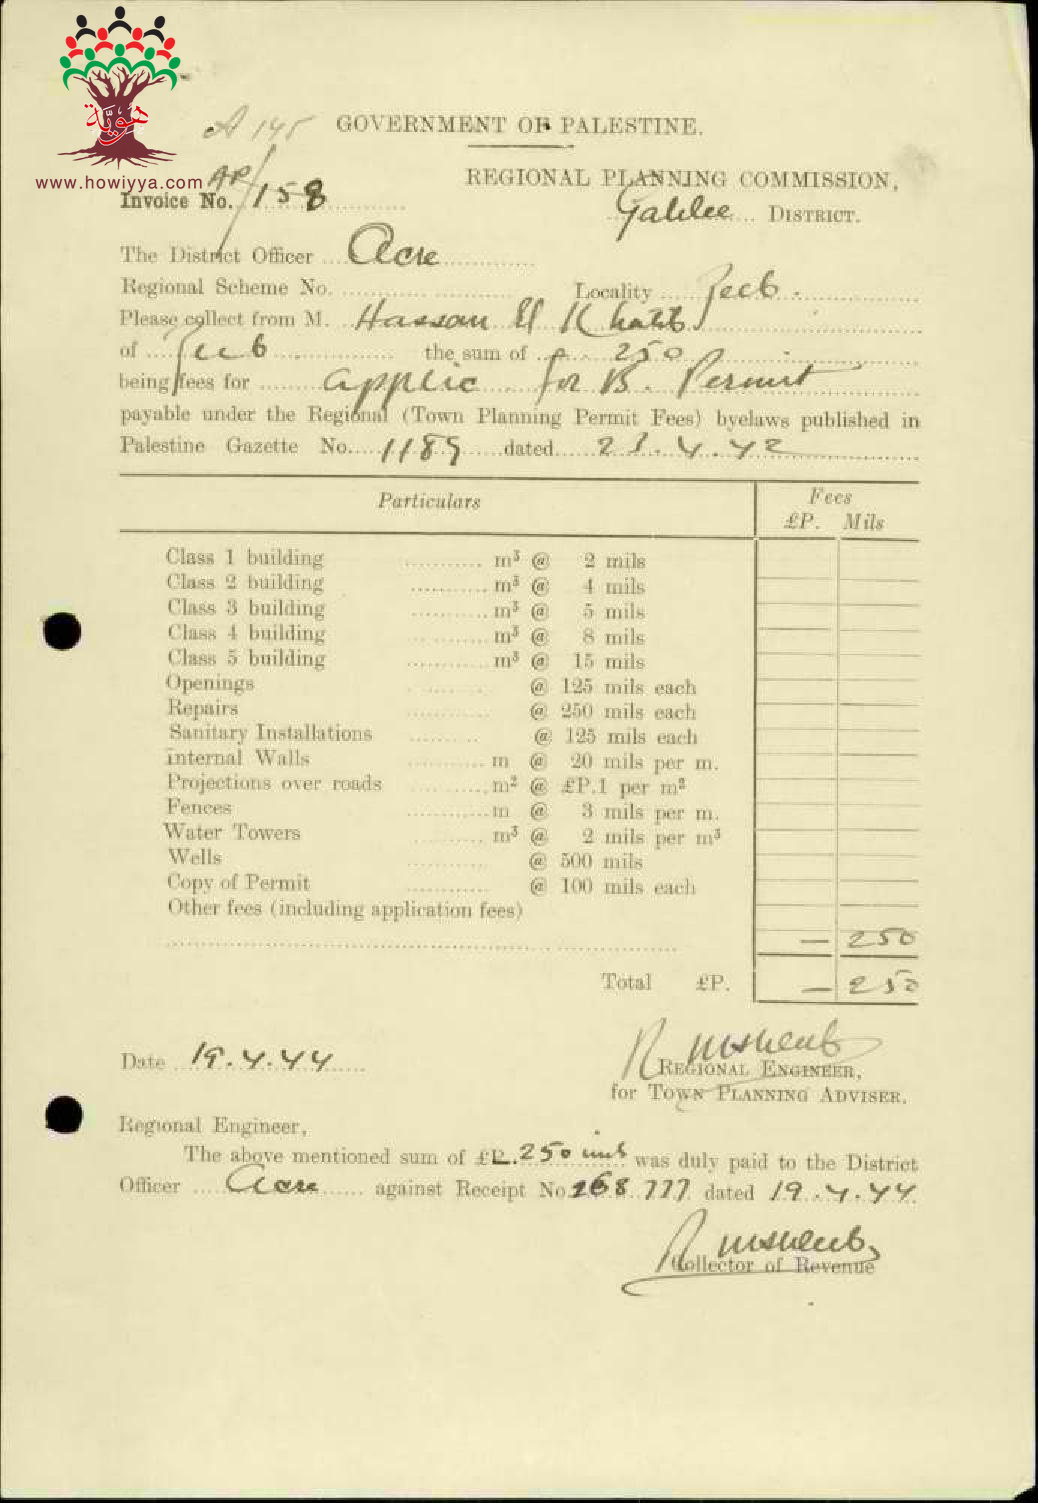 هويّة
www.howiyya.com
A 145
GOVERNMENT OF PALESTINE.
REGIONAL PLANNING COMMISSION,
Invoice No. AP/158
Galilee DISTRICT.
The District Officer Acre
Regional Scheme No. Locality Zeeb.
Please collect from M. Hassan El Khatib
of Zeeb the sum of 250
being fees for applic for B. Permit
payable under the Regional (Town Planning Permit Fees) byelaws published in
Palestine Gazette No. 1189 dated 23.4.42
Particulars Fees
£P. Mils
Class 1 building m³ @ 2 mils
Class 2 building m³ @ 4 mils
Class 3 building m³ @ 5 mils
Class 4 building m³ @ 8 mils
Class 5 building m³ @ 15 mils
Openings @ 125 mils each
Repairs @ 250 mils each
Sanitary Installations @ 125 mils each
Internal Walls m @ 20 mils per m.
Projections over roads m² @ £P.1 per m²
Fences m @ 3 mils per m.
Water Towers m³ @ 2 mils per m³
Wells @ 500 mils
Copy of Permit @ 100 mils each
Other fees (including application fees)
— 250
Total £P. — 250
Date 19.4.44
REGIONAL ENGINEER,
for TOWN PLANNING ADVISER.
Regional Engineer,
The above mentioned sum of £P. 250 mils was duly paid to the District
Officer Acre against Receipt No. 268777 dated 19.4.44
Collector of Revenue